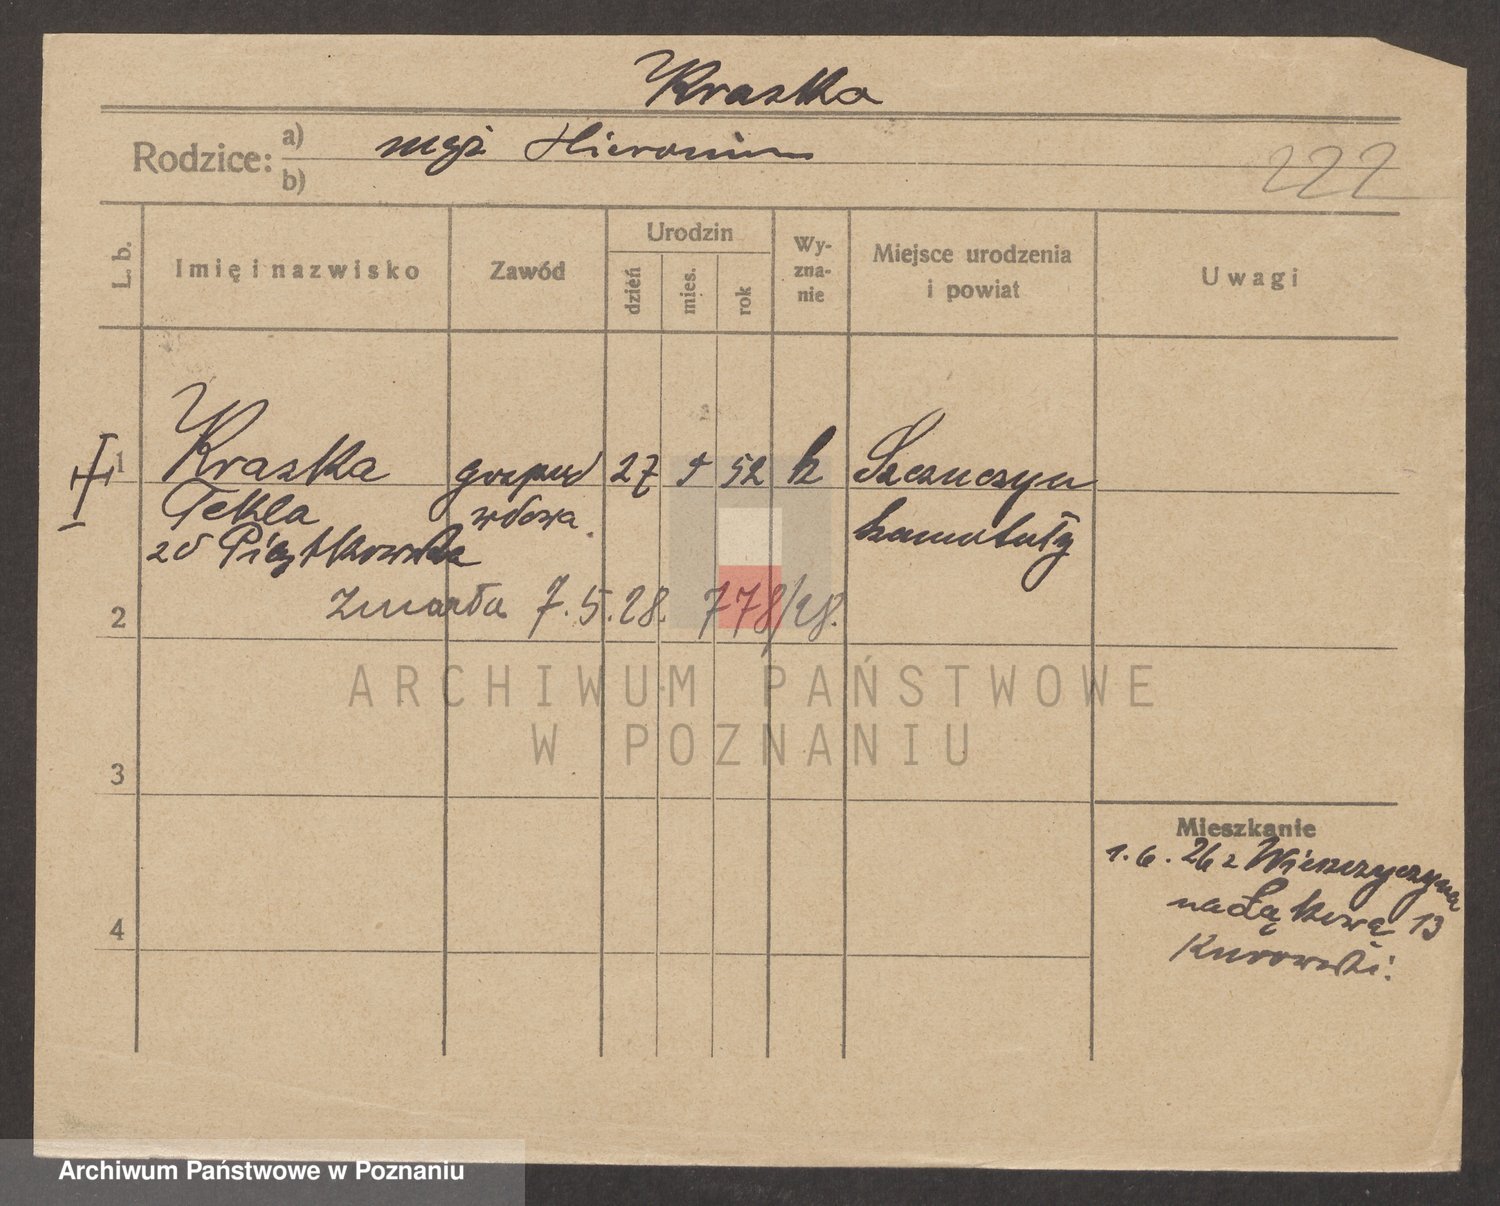 Kraska
Rodzice: a) mąż Hieronim
b)
222
L. b.
Imię i nazwisko
Zawód
Urodzin
dzień
mies.
rok
Wy-
zna-
nie
Miejsce urodzenia
i powiat
Uwagi
1 Kraska gospod 27 9 52 k Szczuczyn
Tekla wdowa Szamotuły
zd Piątkowska
zmarła 7.5.28. 778/28.
2
3
4
ARCHIWUM PAŃSTWOWE
W POZNANIU
Mieszkanie
1.6.26 z
na Łąkową 13
Kurowski
Archiwum Państwowe w Poznaniu